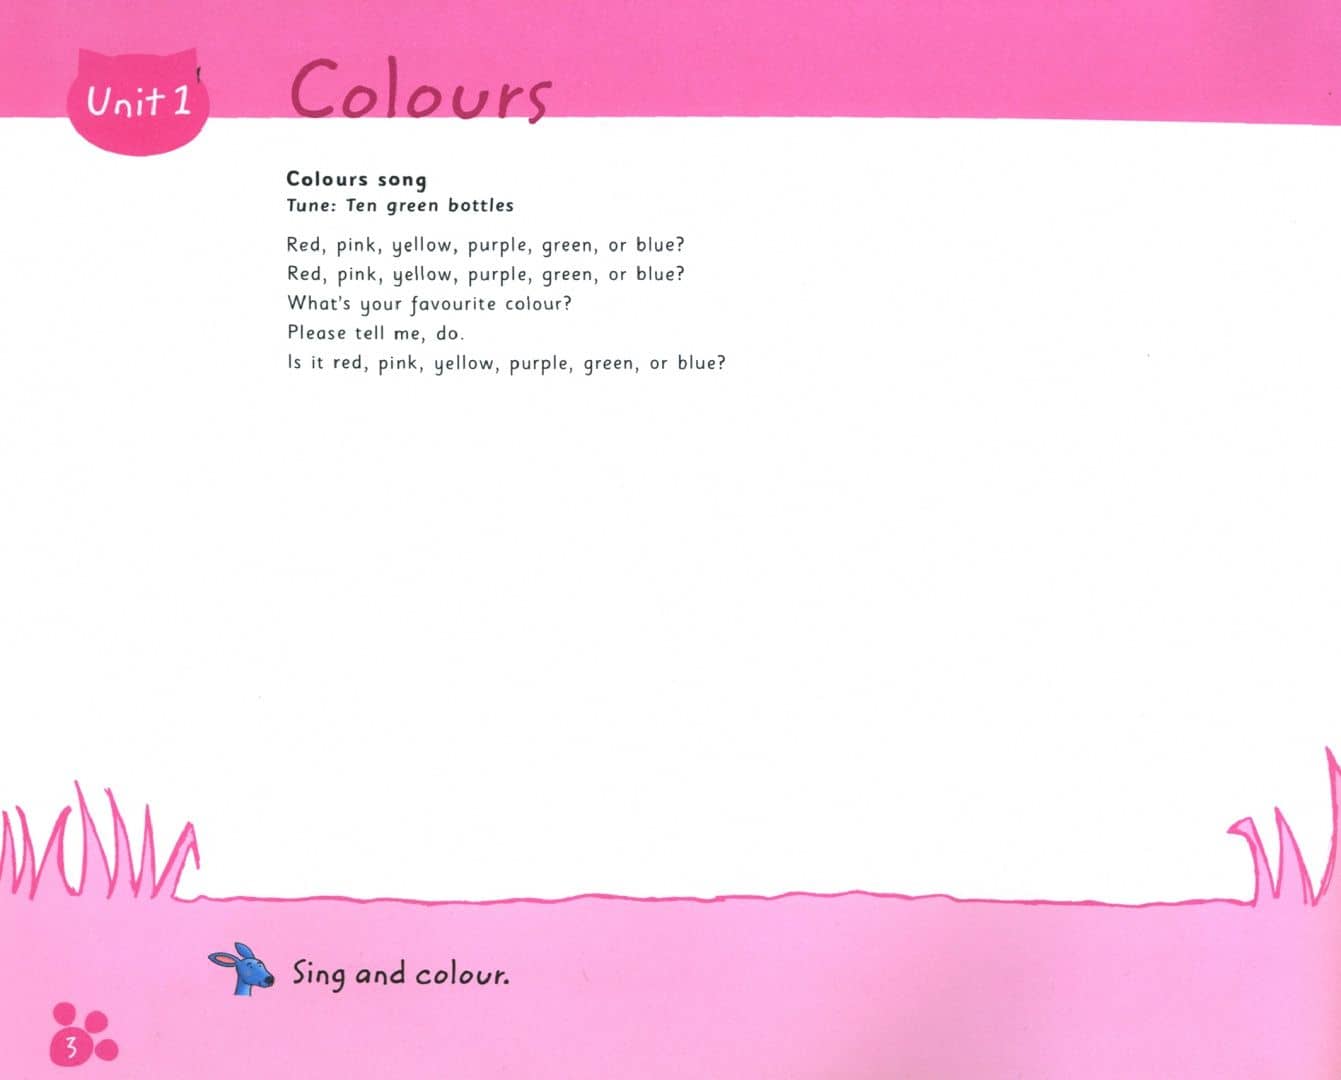 Unit 1
Colours
Colours song
Tune: Ten green bottles
Red, pink, yellow, purple, green, or blue?
Red, pink, yellow, purple, green, or blue?
What's your favourite colour?
Please tell me, do.
Is it red, pink, yellow, purple, green, or blue?
Sing and colour.
3